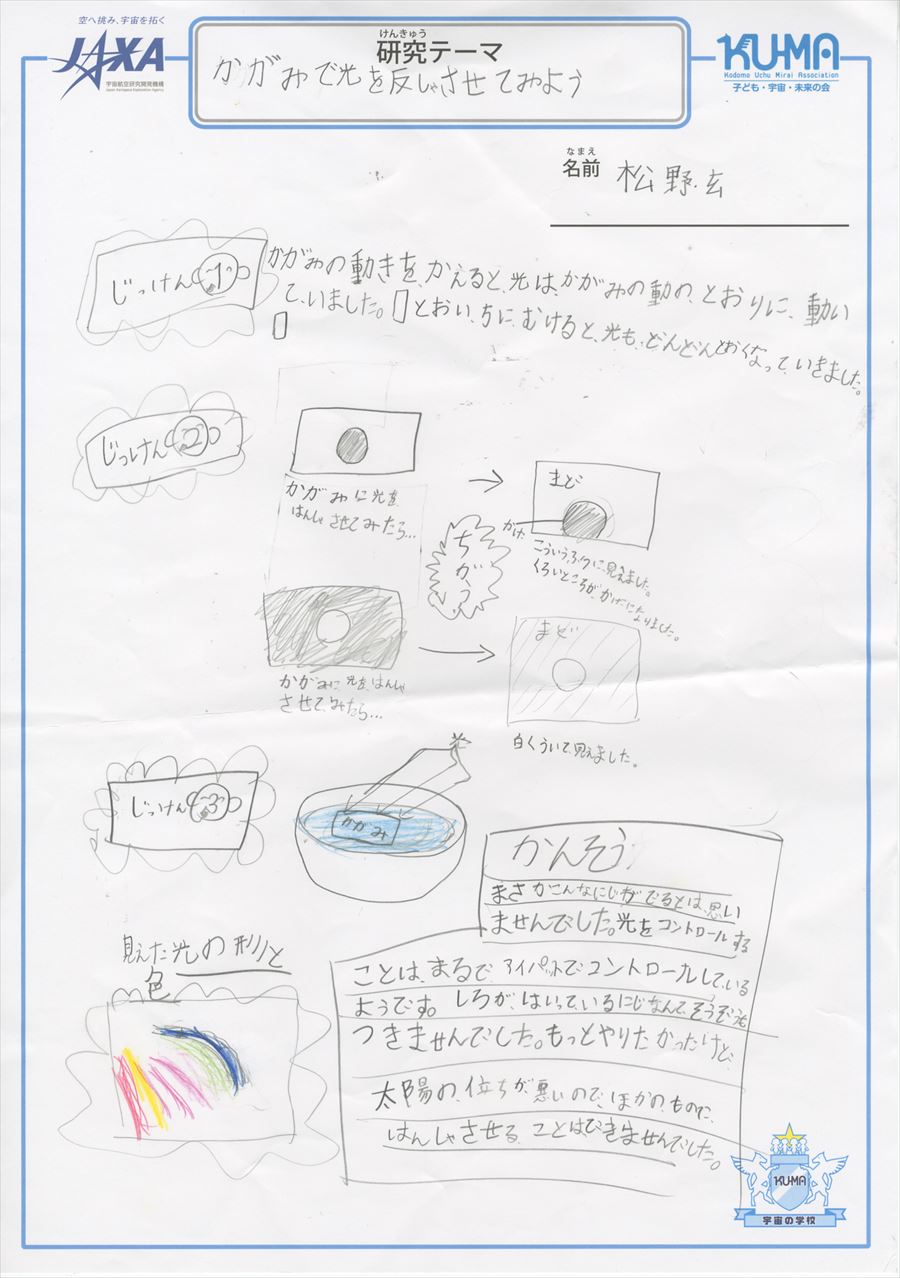 空へ挑み、宇宙を拓く
JAXA
宇宙航空研究開発機構
Japan Aerospace Exploration Agency
けんきゅう
研究テーマ
かがみで光を反しゃさせてみよう
KU-MA
Kodomo Uchu Mirai Association
子ども・宇宙・未来の会
なまえ
名前 松野玄
じっけん1
かがみの動きを、かえると、光は、かがみの動の、とおりに、動い
て、いました。とおい、ちに、むけると、光も、どんどんとおくなって、いきました。
じっけん2
かがみに光を、
はんしゃさせてみたら…
まど
かげ
こういうふうに、見えました。
くろいところが、かげになりました。
ちがう
かがみに、光を、はんしゃ
させて、みたら…
まど
白くういて、見えました。
じっけん3
光
かがみ
見えた光の形と
色
かんそう
まさかこんなにじがでるとは、思い
ませんでした。光をコントロールする
ことは、まるで、アイパットでコントロールしている
ようです。しろが、はいっているにじなんて、そうぞうも
つきませんでした。もっとやりたかったけど、
太陽の、位ちが、悪いので、ほかの、ものに、
はんしゃさせる、ことはできませんでした。
KU-MA
宇宙の学校